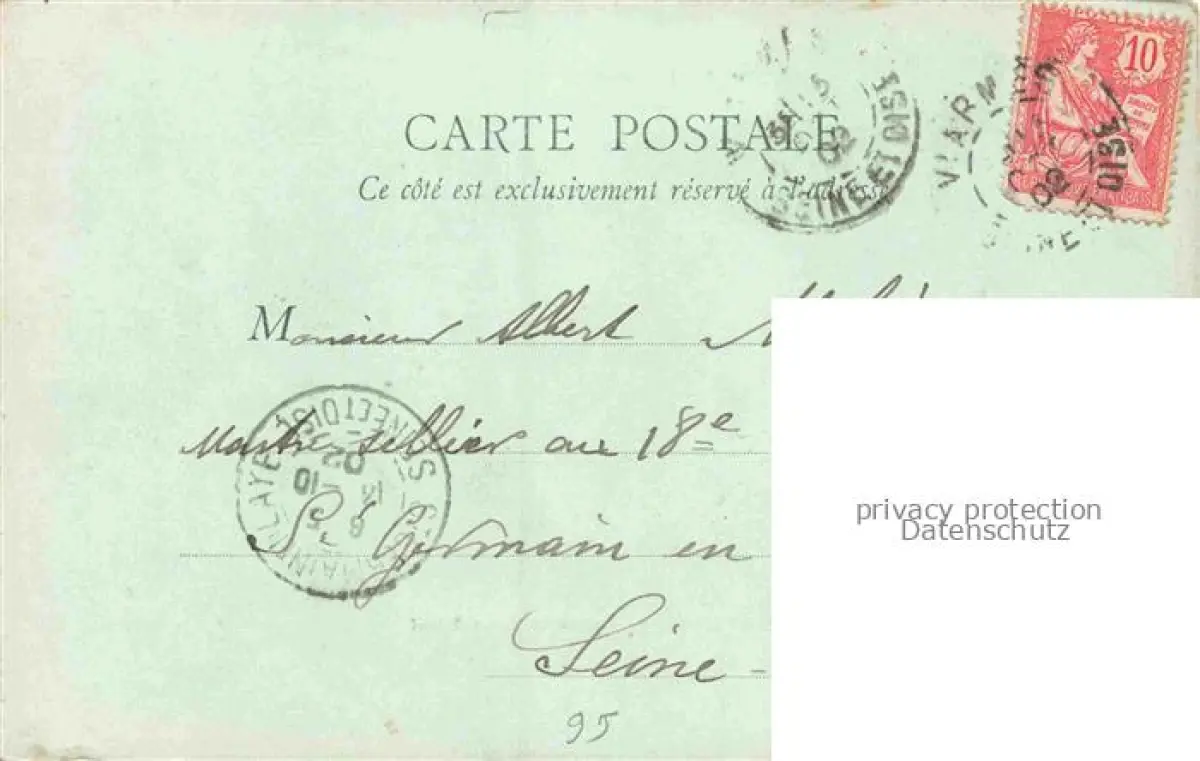 10
CARTE POSTALE
Ce côté est exclusivement réservé à l'adresse
SEINE ET OISE
02
VIARM
SEINE-ET-OISE
02
Monsieur Albert
Maitre sellier au 18e
St Germain en
Seine -
ST GERMAIN LAYE SEINE ET OISE
02
95
privacy protection
Datenschutz